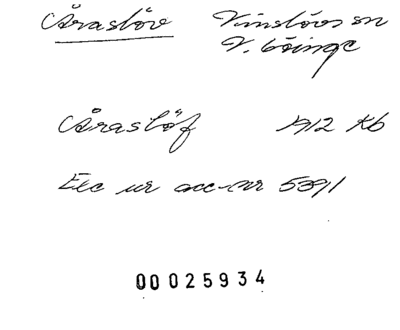 Åraslöv Vinslövs sn
V. Göinge
Åraslöf 1912 Kb
Exc ur acc-nr 539/1
00025934